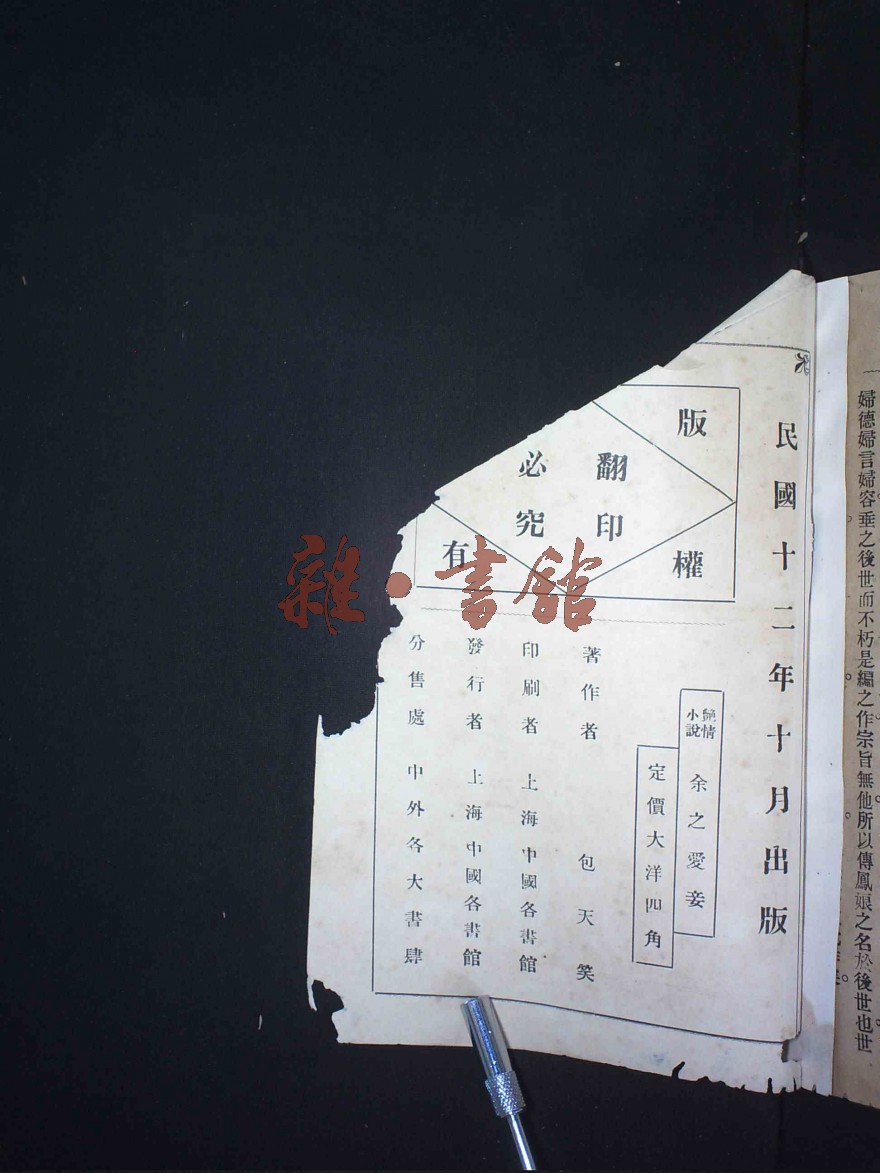 婦德婦言婦容垂之後世而不朽是編之作宗旨無他所以傳鳳娘之名於後世也世
民國十二年十月出版
版權
有
翻印
必究
艷情小說 余之愛妾
定價大洋四角
著作者 包天笑
印刷者 上海中國各書館
發行者 上海中國各書館
分售處 中外各大書肆
雜·書館